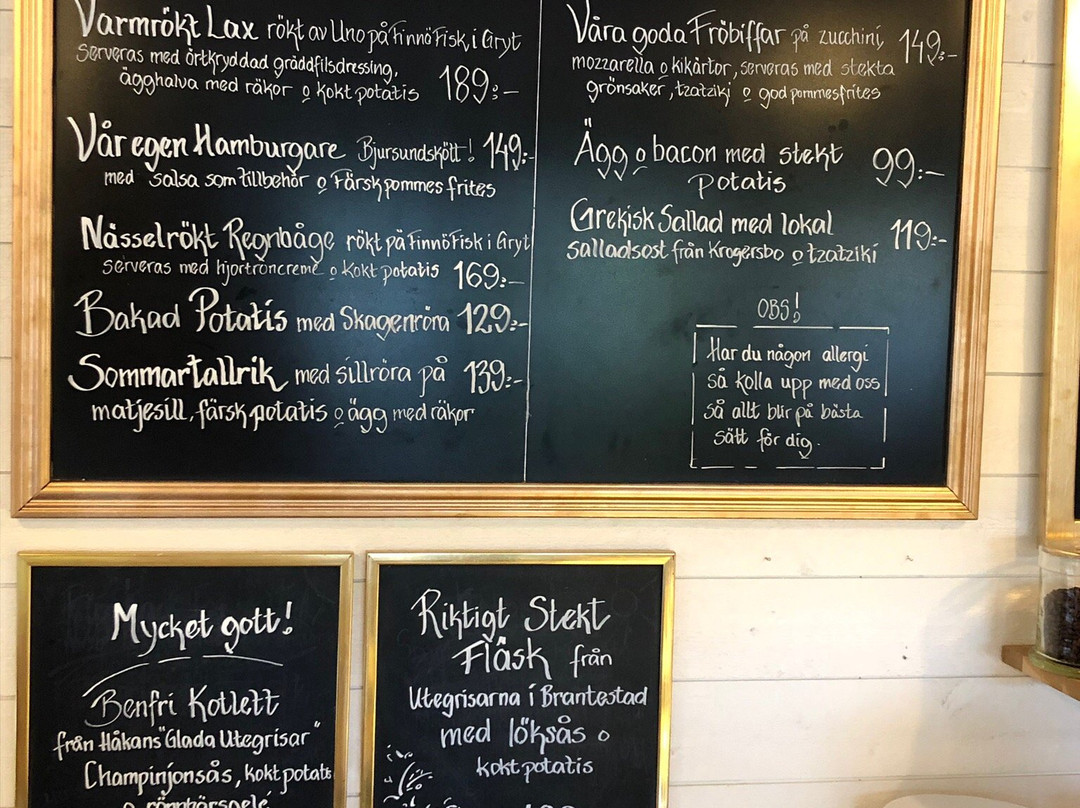 Varmrökt Lax rökt av Uno på Finnö Fisk, i Gryt
Serveras med örtkryddad gräddfilsdressing,
ägghalva med räkor o kokt potatis 189:-
Vår egen Hamburgare Bjursundskött! 149:-
med salsa som tillbehör o Färsk pommes frites
Nässelrökt Regnbåge rökt på Finnö Fisk i Gryt
serveras med hjortroncreme o kokt potatis 169:-
Bakad Potatis med Skagenröra 129:-
Sommartallrik med sillröra på 139:-
matjesill, färskpotatis o ägg med räkor
Våra goda Fröbiffar på zucchini, 149:-
mozzarella o kikärtor, serveras med stekta
grönsaker, tzatziki o god pommesfrites
Ägg o bacon med stekt 99:-
potatis
Grekisk Sallad med lokal 119:-
salladsost från Krogersbo o tzatziki
OBS!
Har du någon allergi
så kolla upp med oss
så allt blir på bästa
sätt för dig.
Mycket gott!
Benfri Kotlett
från Håkans "Glada Utegrisar"
Champinjonsås, kokt potatis
o rönnbärsgelé
Riktigt Stekt
Fläsk från
Utegrisarna i Brantestad
med löksås o
kokt potatis